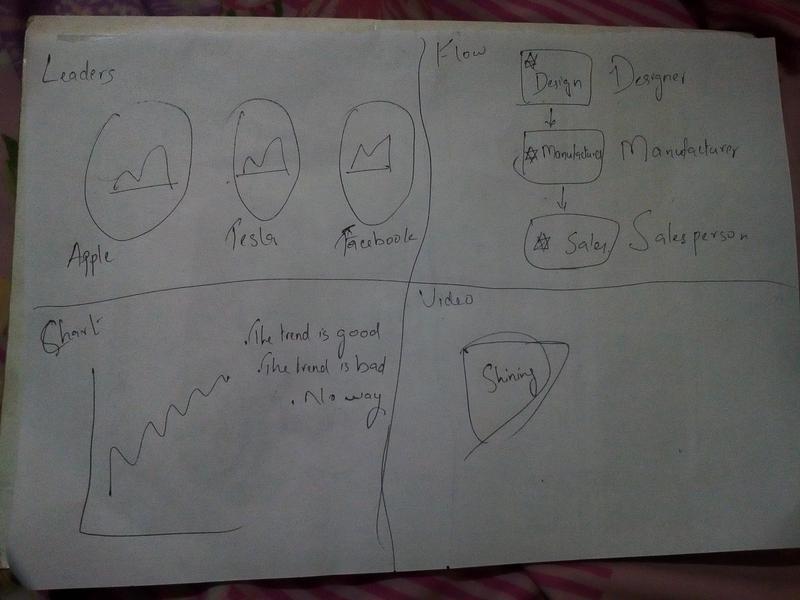 Leaders
Apple
Tesla
Facebook
Flow
Design
Designer
Manufacturer
Manufacturer
Sales
Salesperson
Chart
. The trend is good
. The trend is bad
. No way
Video
Shining